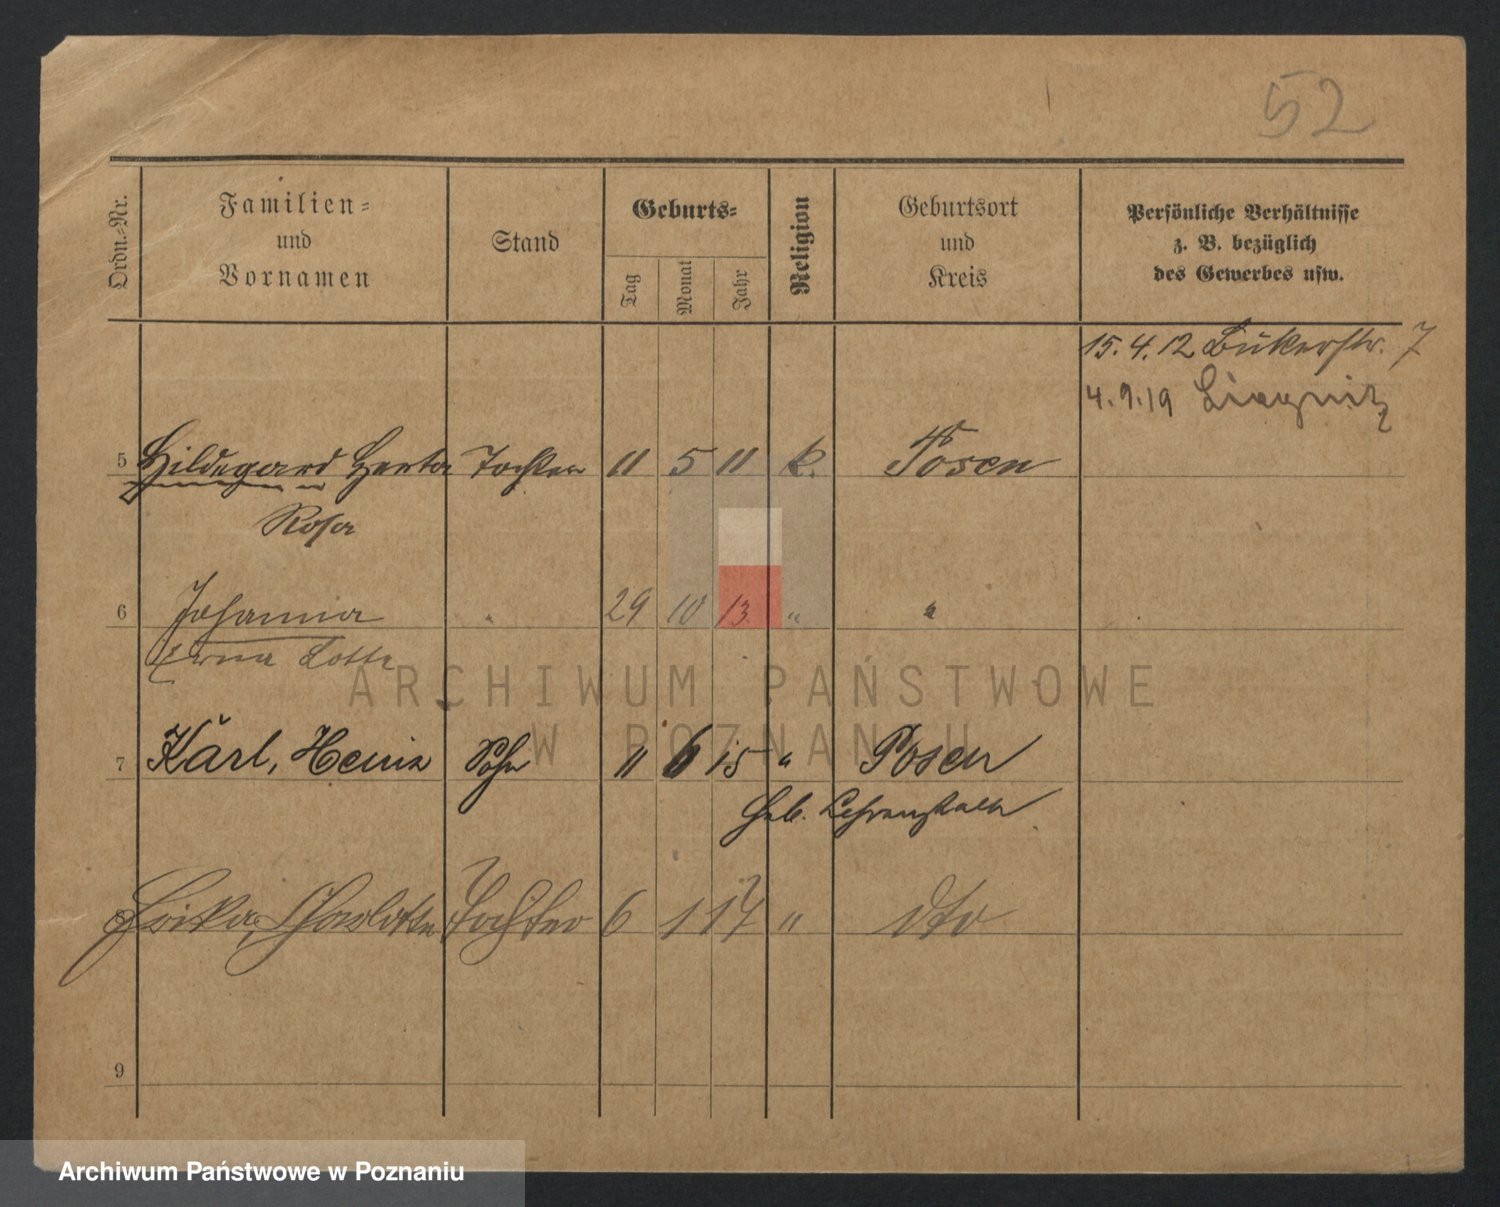 52
Ordn.-Nr.
Familien-
und
Vornamen
Stand
Geburts-
Tag
Monat
Jahr
Religion
Geburtsort
und
Kreis
Persönliche Verhältnisse
z. B. bezüglich
des Gewerbes usw.
15.4.12 Bukerstr. 7
4.9.19 Liegnitz
5 Hildegard Herta Tochter 11 5 11 k. Posen
Rosa
6 Johanna " 29 10 13 " "
Erna Lotte
ARCHIWUM PAŃSTWOWE
W POZNANIU
7 Karl, Heinz Sohn 11 6 15 " Posen
Heb. Lehranstalt
8 Erika, Charlotte Tochter 6 1 17 " dto
9
Archiwum Państwowe w Poznaniu